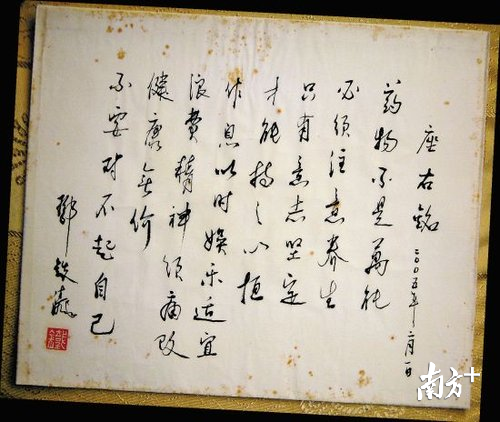 座右銘
二〇〇五年二月一日
药物不是萬能
必须注意养生
只有意志坚定
才能持之以恒
作息以时娱乐适宜
浪費精神须痛改
健康无价
不要对不起自己
鄧铁涛
南方+